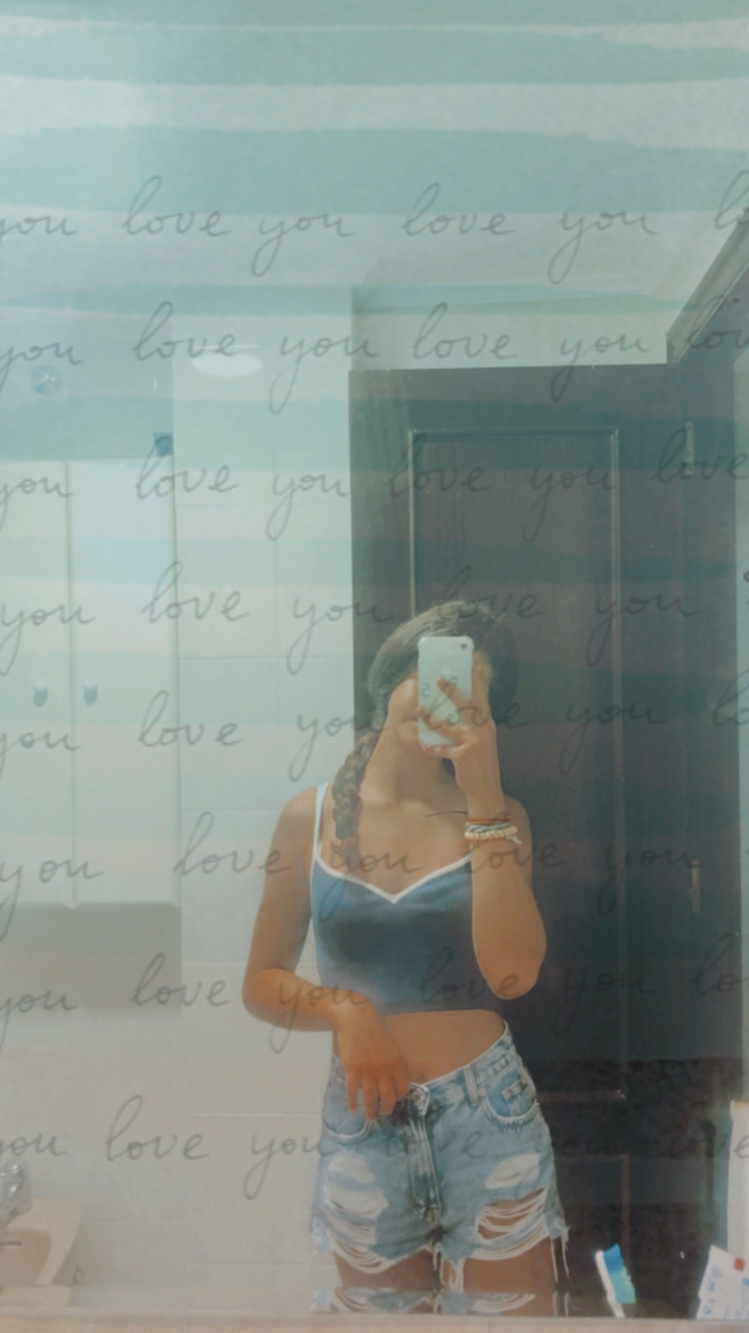 you love you love you l
you love you love you lov
you love you love you love
you love you love you
you love you love you lo
you love you love you
you love you love you lo
you love you love you love